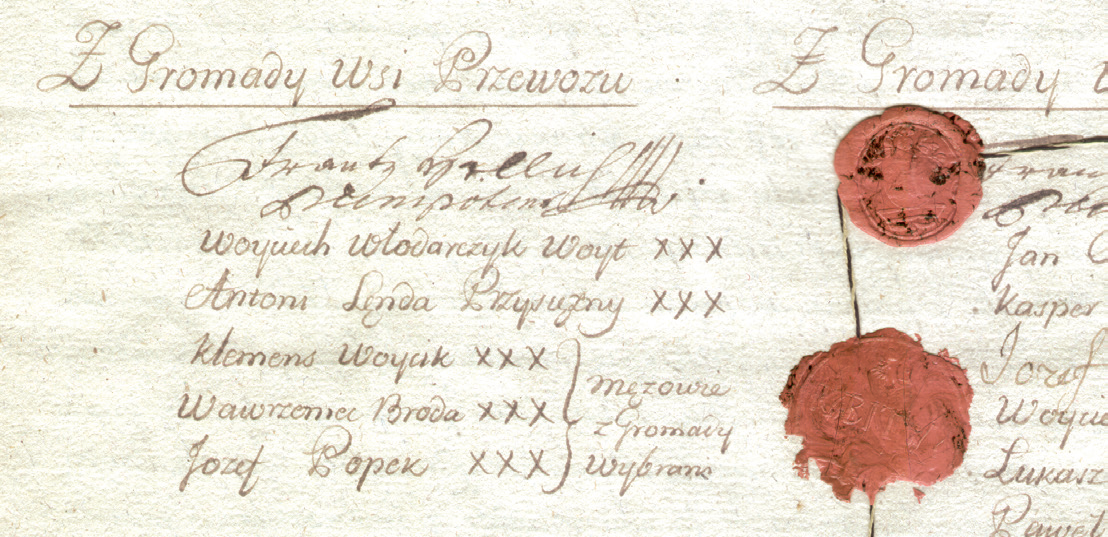 Z Gromady wsi Przewozu
Frantz
Woyciech Włodarczyk Woyt XXX
Antoni Lęnda Przysiężny XXX
Klemens Woycik XXX
Wawrzeniec Broda XXX
Jozef Popek XXX
Mężowie
z Gromady
Wybrani
Z Gromady
Jan
Kasper
Jozef
Łukasz
Paweł